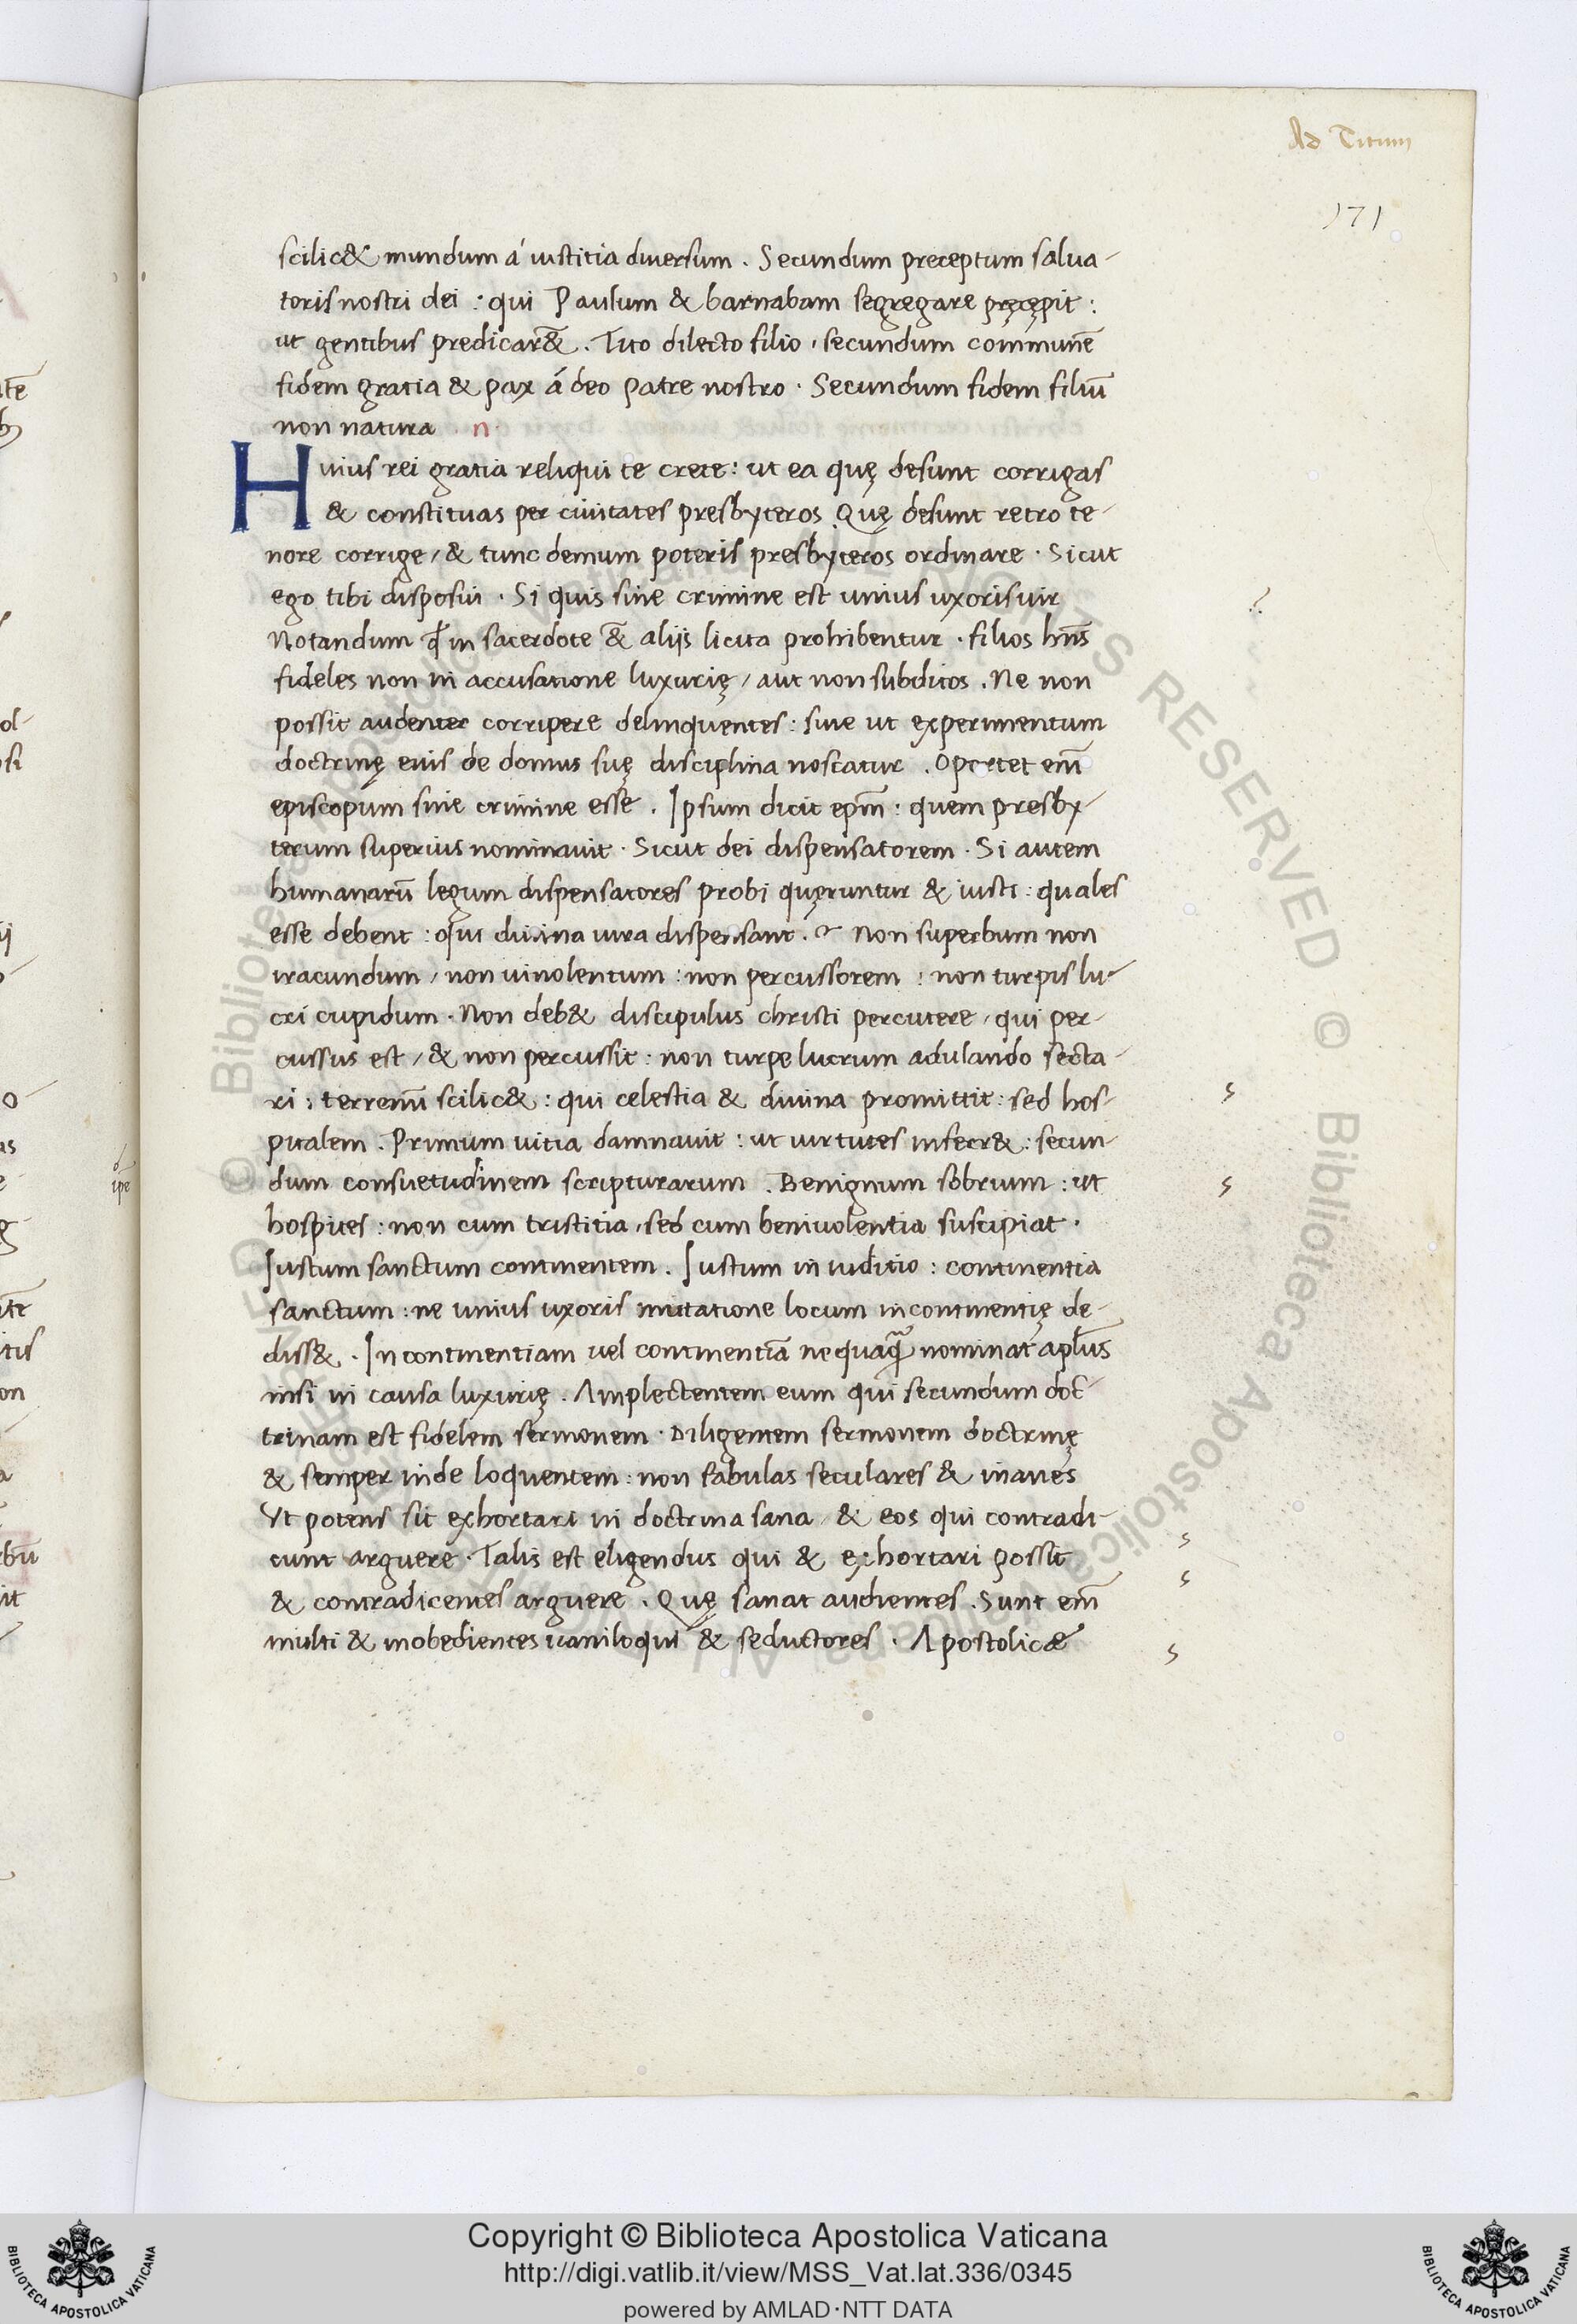 Ad Titum
171
scilic& mundum á iustitia diuersum . Secundum preceptum salua-
toris nostri dei : qui Paulum & barnabam segregare pręcępit :
ut gentibus predicar&̄ . Tito dilecto filio , secundum commune᷑̄
fidem gratia & pax á deo patre nostro . Secundum fidem filiū
non natura . n
Huius rei gratia reliqui te crete : ut ea quę desunt corrigas
& constituas per ciuitates presbyteros . Quę desunt retro te-
nore corrige / & tunc demum poteris presbyteros ordinare . Sicut
ego tibi disposui . Si quis sine crimine est unius uxoris uir
Notandum ꝙ in sacerdote &̄ alijs licita prohibentur . filios hn̄s
fideles non in accusatione luxurię / aut non subditos . Ne non
possit audenter corripere delinquentes : siue ut experimentum
doctrinę eius de domus suę disciplina noscatur . Oportet em̄
episcopum sine crimine esse . Ipsum dicit ep̄m : quem presby-
terum superius nominauit . Sicut dei dispensatorem . Si autem
humanarū legum dispensatores probi quęruntur & iusti : quales
esse debent : qui diuina iura dispensant . Non superbum non
iracundum / non uinolentum : non percussorem : non turpis lu-
cri cupidum . Non deb& discipulus christi percutere / qui per-
cussus est / & non percussit : non turpe lucrum adulando secta-
ri : terrenū scilic& : qui celestia & diuina promittit : sed hos-
pitalem . Primum uitia damnauit : ut uirtutes inserer& : secun-
dum consuetudinem scripturarum . Benignum sobrium : ut
hospites : non cum tristitia , sed cum beniuolentia suscipiat .
Iustum sanctum continentem . Iustum in iuditio : continentia
sanctum : ne unius uxoris mutatione locum incontinentię de-
diss& . Incontinentiam uel continentiā nequaq̄ nominat apl̄us
nisi in causa luxurię . Amplectentem eum qui secundum doc-
trinam est fidelem sermonem . Diligentem sermonem doctrinę
& semper inde loquentem : non fabulas seculares & inanes
Vt potens sit exhortari in doctrina sana / & eos qui contradi-
cunt arguere . Talis est eligendus qui & exhortari possit
& contradicentes arguere . Quę sanat audientes . Sunt em̄
multi & inobedientes uaniloqui & seductores . Apostolicæ
Copyright © Biblioteca Apostolica Vaticana
http://digi.vatlib.it/view/MSS_Vat.lat.336/0345
powered by AMLAD·NTT DATA